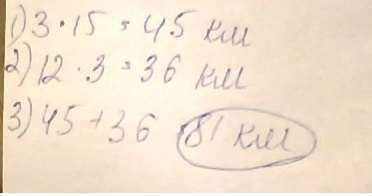 1) 3 · 15 = 45 км
2) 12 · 3 = 36 км
3) 45 + 36 81 км